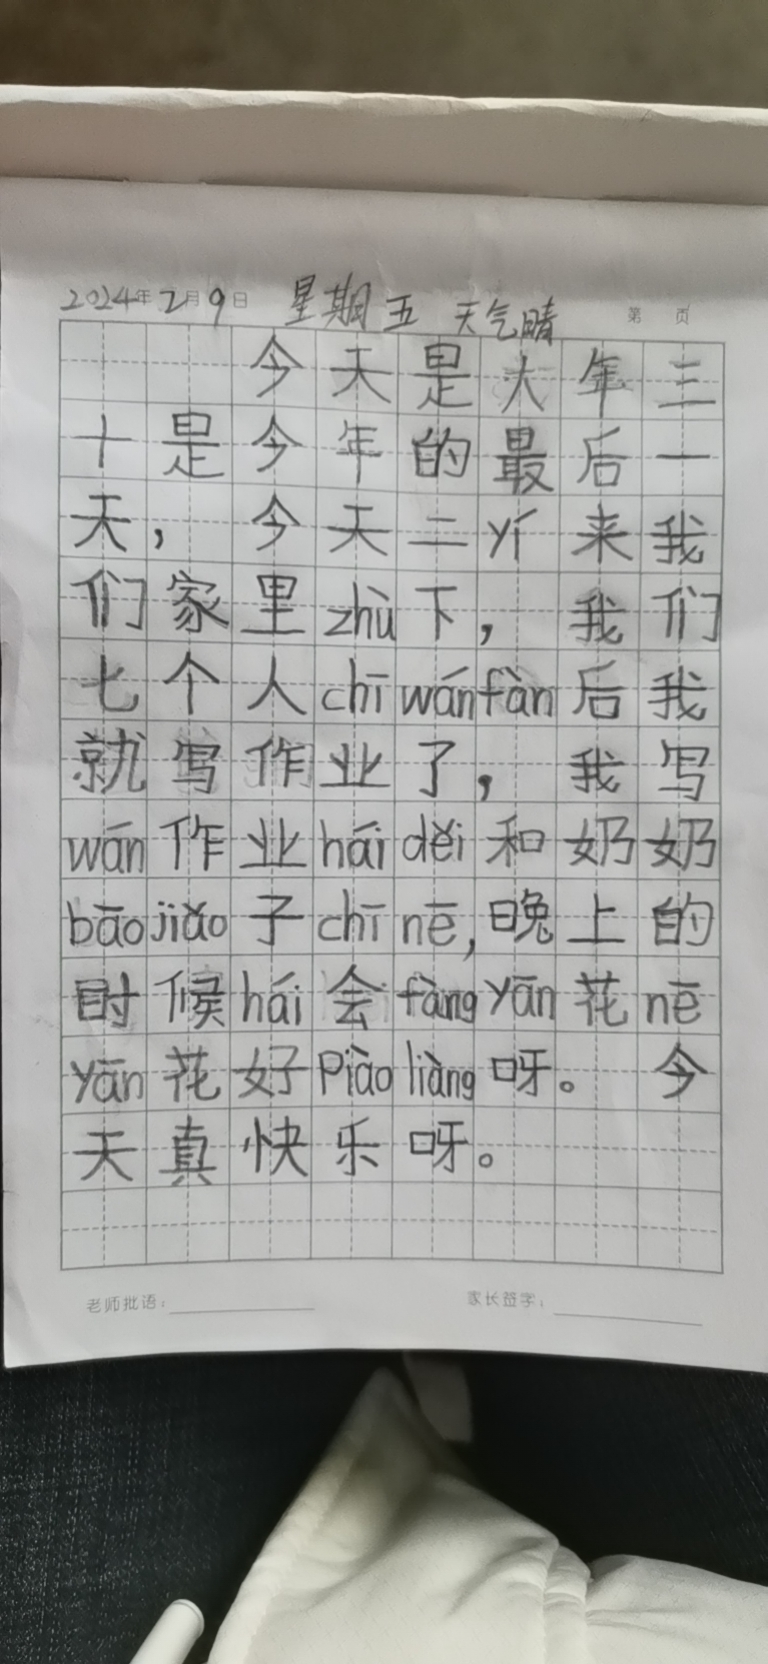 2024年2月9日 星期五 天气晴 第 页
今天是大年三
十是今年的最后一
天，今天二丫来我
们家里zhù下，我们
七个人chīwánfàn后我
就写作业了，我写
wán作业háiděi和奶奶
bāojiǎo子chīnē,晚上的
时候hái会fàngyān花nē
yān花好Piàoliàng呀。今
天真快乐呀。
老师批语： 家长签字：